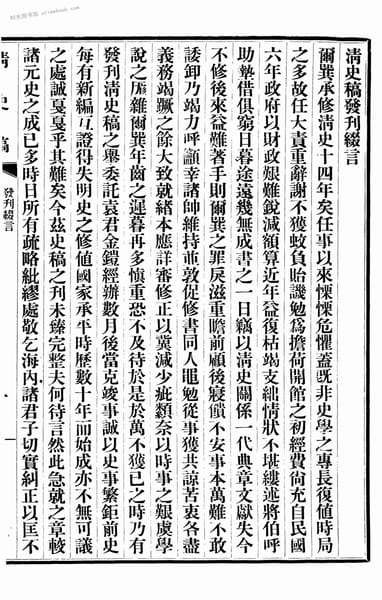 清史稿發刊綴言
爾巽承修清史十四年矣任事以來慄慄危懼蓋既非史學之專長復值時局
之多故任大責重辭謝不獲蚊負貽譏勉爲擔荷開館之初經費尚充自民國
六年政府以財政艱難銳減額算近年益復枯竭支絀情狀不堪縷述將伯呼
助墊借俱窮日暮途遠幾無成書之一日竊以清史關係一代典章文獻失今
不修後來益難著手則爾巽之罪戾滋重瞻前顧後寢饋不安事本萬難不敢
諉卸乃竭力呼籲幸諸帥維持並敦促修書同人黽勉從事獲共諒苦衷各盡
義務竭蹶之餘大致就緒本應詳審修正以冀減少疵纇奈以時事之艱虞學
說之厖雜爾巽年齒之遲暮再多慎重恐不及待於是於萬不獲已之時乃有
發刊清史稿之舉委託袁君金鎧經辦數月後當克竣事誠以史事繁鉅前史
每有新編互證得失明史之修值國家承平時歷數十年而始成亦不無可議
之處誠戛戛乎其難矣今茲史稿之刊未臻完整夫何待言然此急就之章較
諸元史之成已多時日所有疏略紕繆處敬乞海內諸君子切實糾正以匡不
清史稿
發刊綴言
一